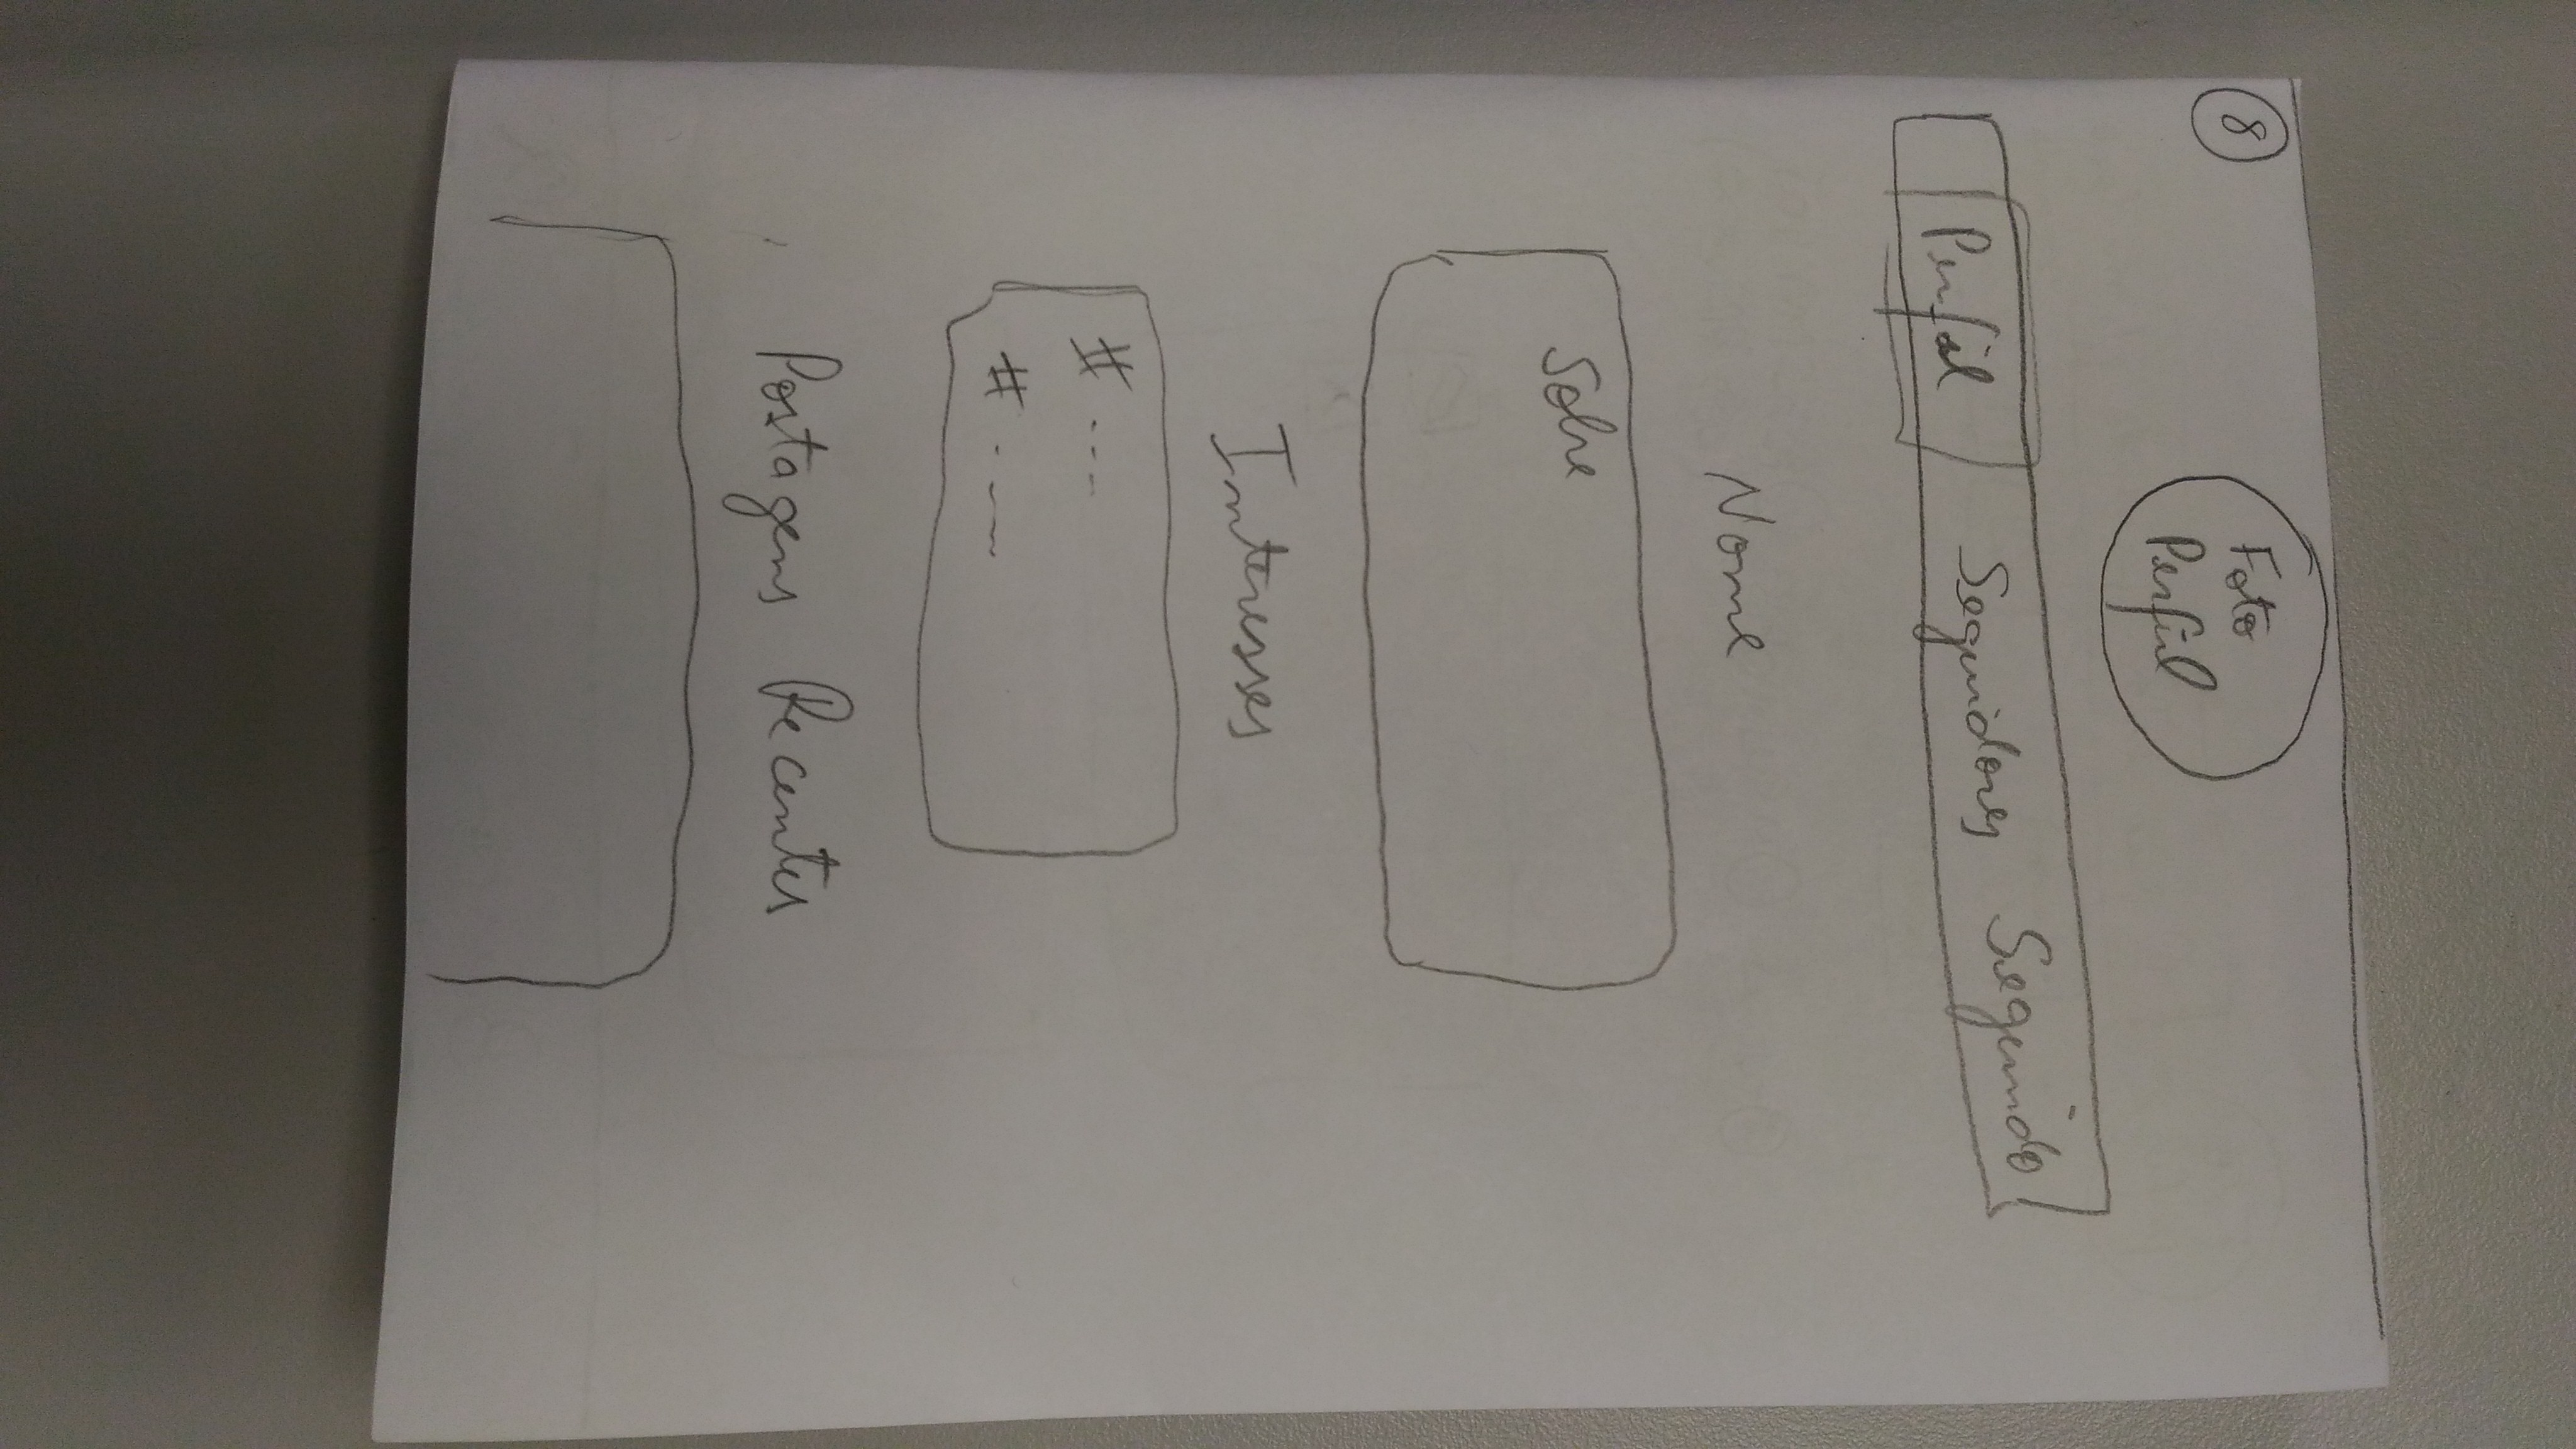 8
Foto
Perfil
Perfil Seguidores Seguindo
Nome
Sobre
Interesses
# ---
# . ---
Postagens Recentes